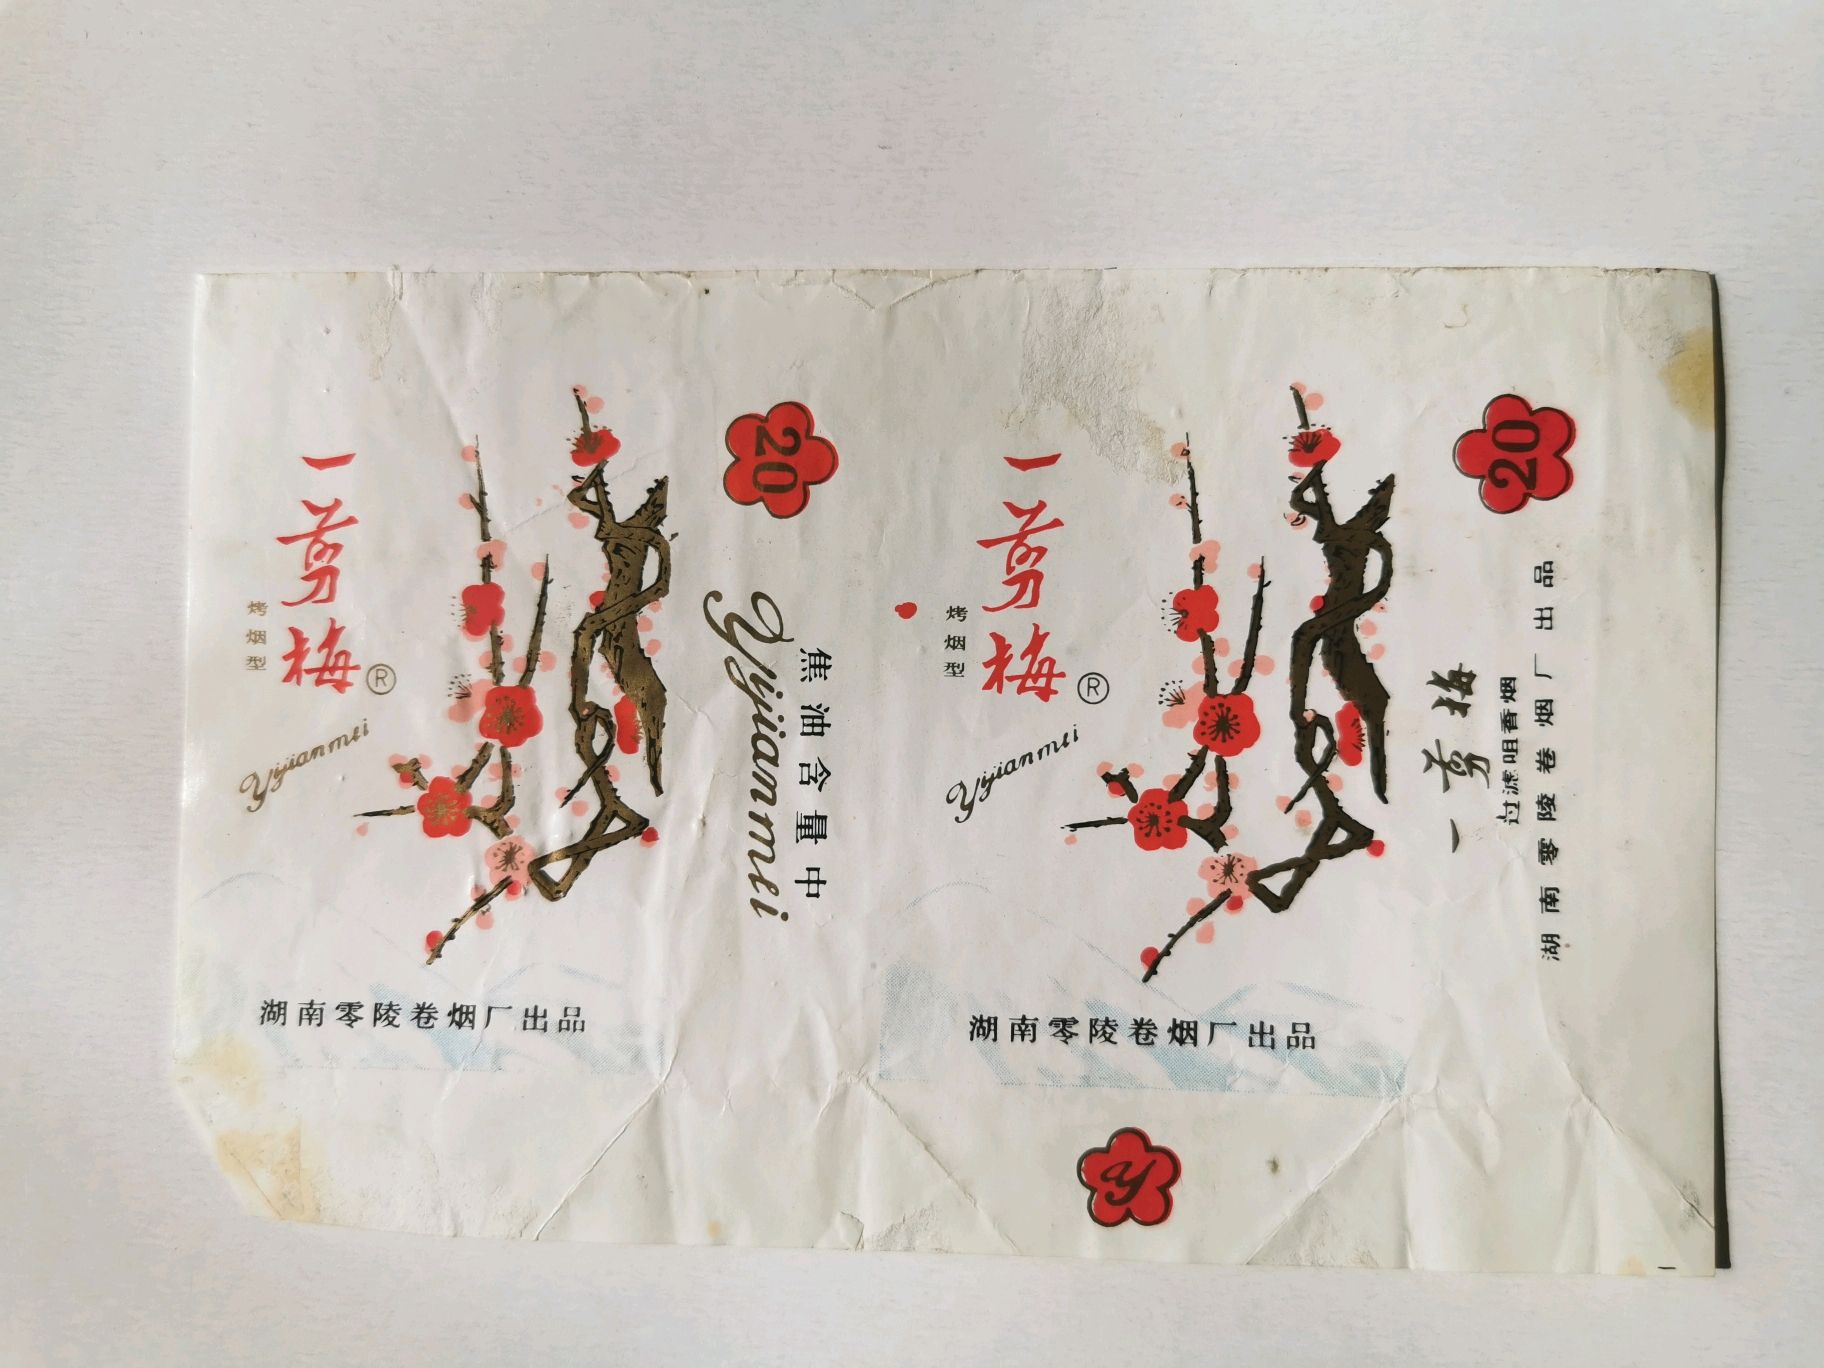 一剪梅
烤烟型
®
Yijianmei
湖南零陵卷烟厂出品
20
Yijianmei
焦油含量中
一剪梅
烤烟型
®
Yijianmei
湖南零陵卷烟厂出品
Y
20
一剪梅
过滤咀香烟
湖南零陵卷烟厂出品